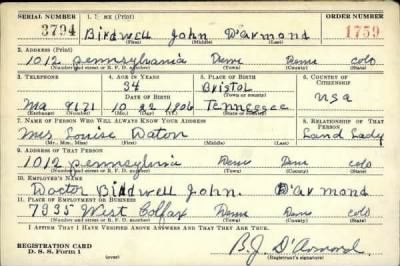 SERIAL NUMBER 1. NAME (Print) ORDER NUMBER
3794 Birdwell John D'armond 1759
(First) (Middle) (Last)
2. ADDRESS (Print)
1012 pennsylvania Denv Denv colo
(Number and street or R. F. D. number) (Town) (County) (State)
3. TELEPHONE 4. AGE IN YEARS 5. PLACE OF BIRTH 6. COUNTRY OF CITIZENSHIP
34 Bristol
Ma 9171 10 22 1906 Tennessee USA
(Exchange) (Number) (Mo.) (Day) (Yr.) (State or country)
7. NAME OF PERSON WHO WILL ALWAYS KNOW YOUR ADDRESS 8. RELATIONSHIP OF THAT PERSON
Mrs Louise Daton Land Lady
(Mr., Mrs., Miss) (First) (Middle) (Last)
9. ADDRESS OF THAT PERSON
1012 pennsylvania Denv Denv colo
(Number and street or R. F. D. number) (Town) (County) (State)
10. EMPLOYER'S NAME
Doctor Birdwell John. D'armond
11. PLACE OF EMPLOYMENT OR BUSINESS
7935 West Colfax Denv Denv colo
(Number and street or R. F. D. number) (Town) (County) (State)
I AFFIRM THAT I HAVE VERIFIED ABOVE ANSWERS AND THAT THEY ARE TRUE.
REGISTRATION CARD
D. S. S. Form 1 (over) B.J. D'Armond
(Registrant's signature)